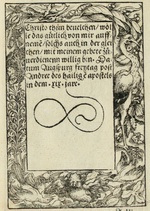 Christo thun bevelchen / wöl
le das gütlich von mir auff
nemē solchs auch in der glei
chen / mit meinem gebete zů
verdienenn willig bin. Da=
tum Augspurg freytag post
Andree des hailigē apostels
in dem .xix. jare.